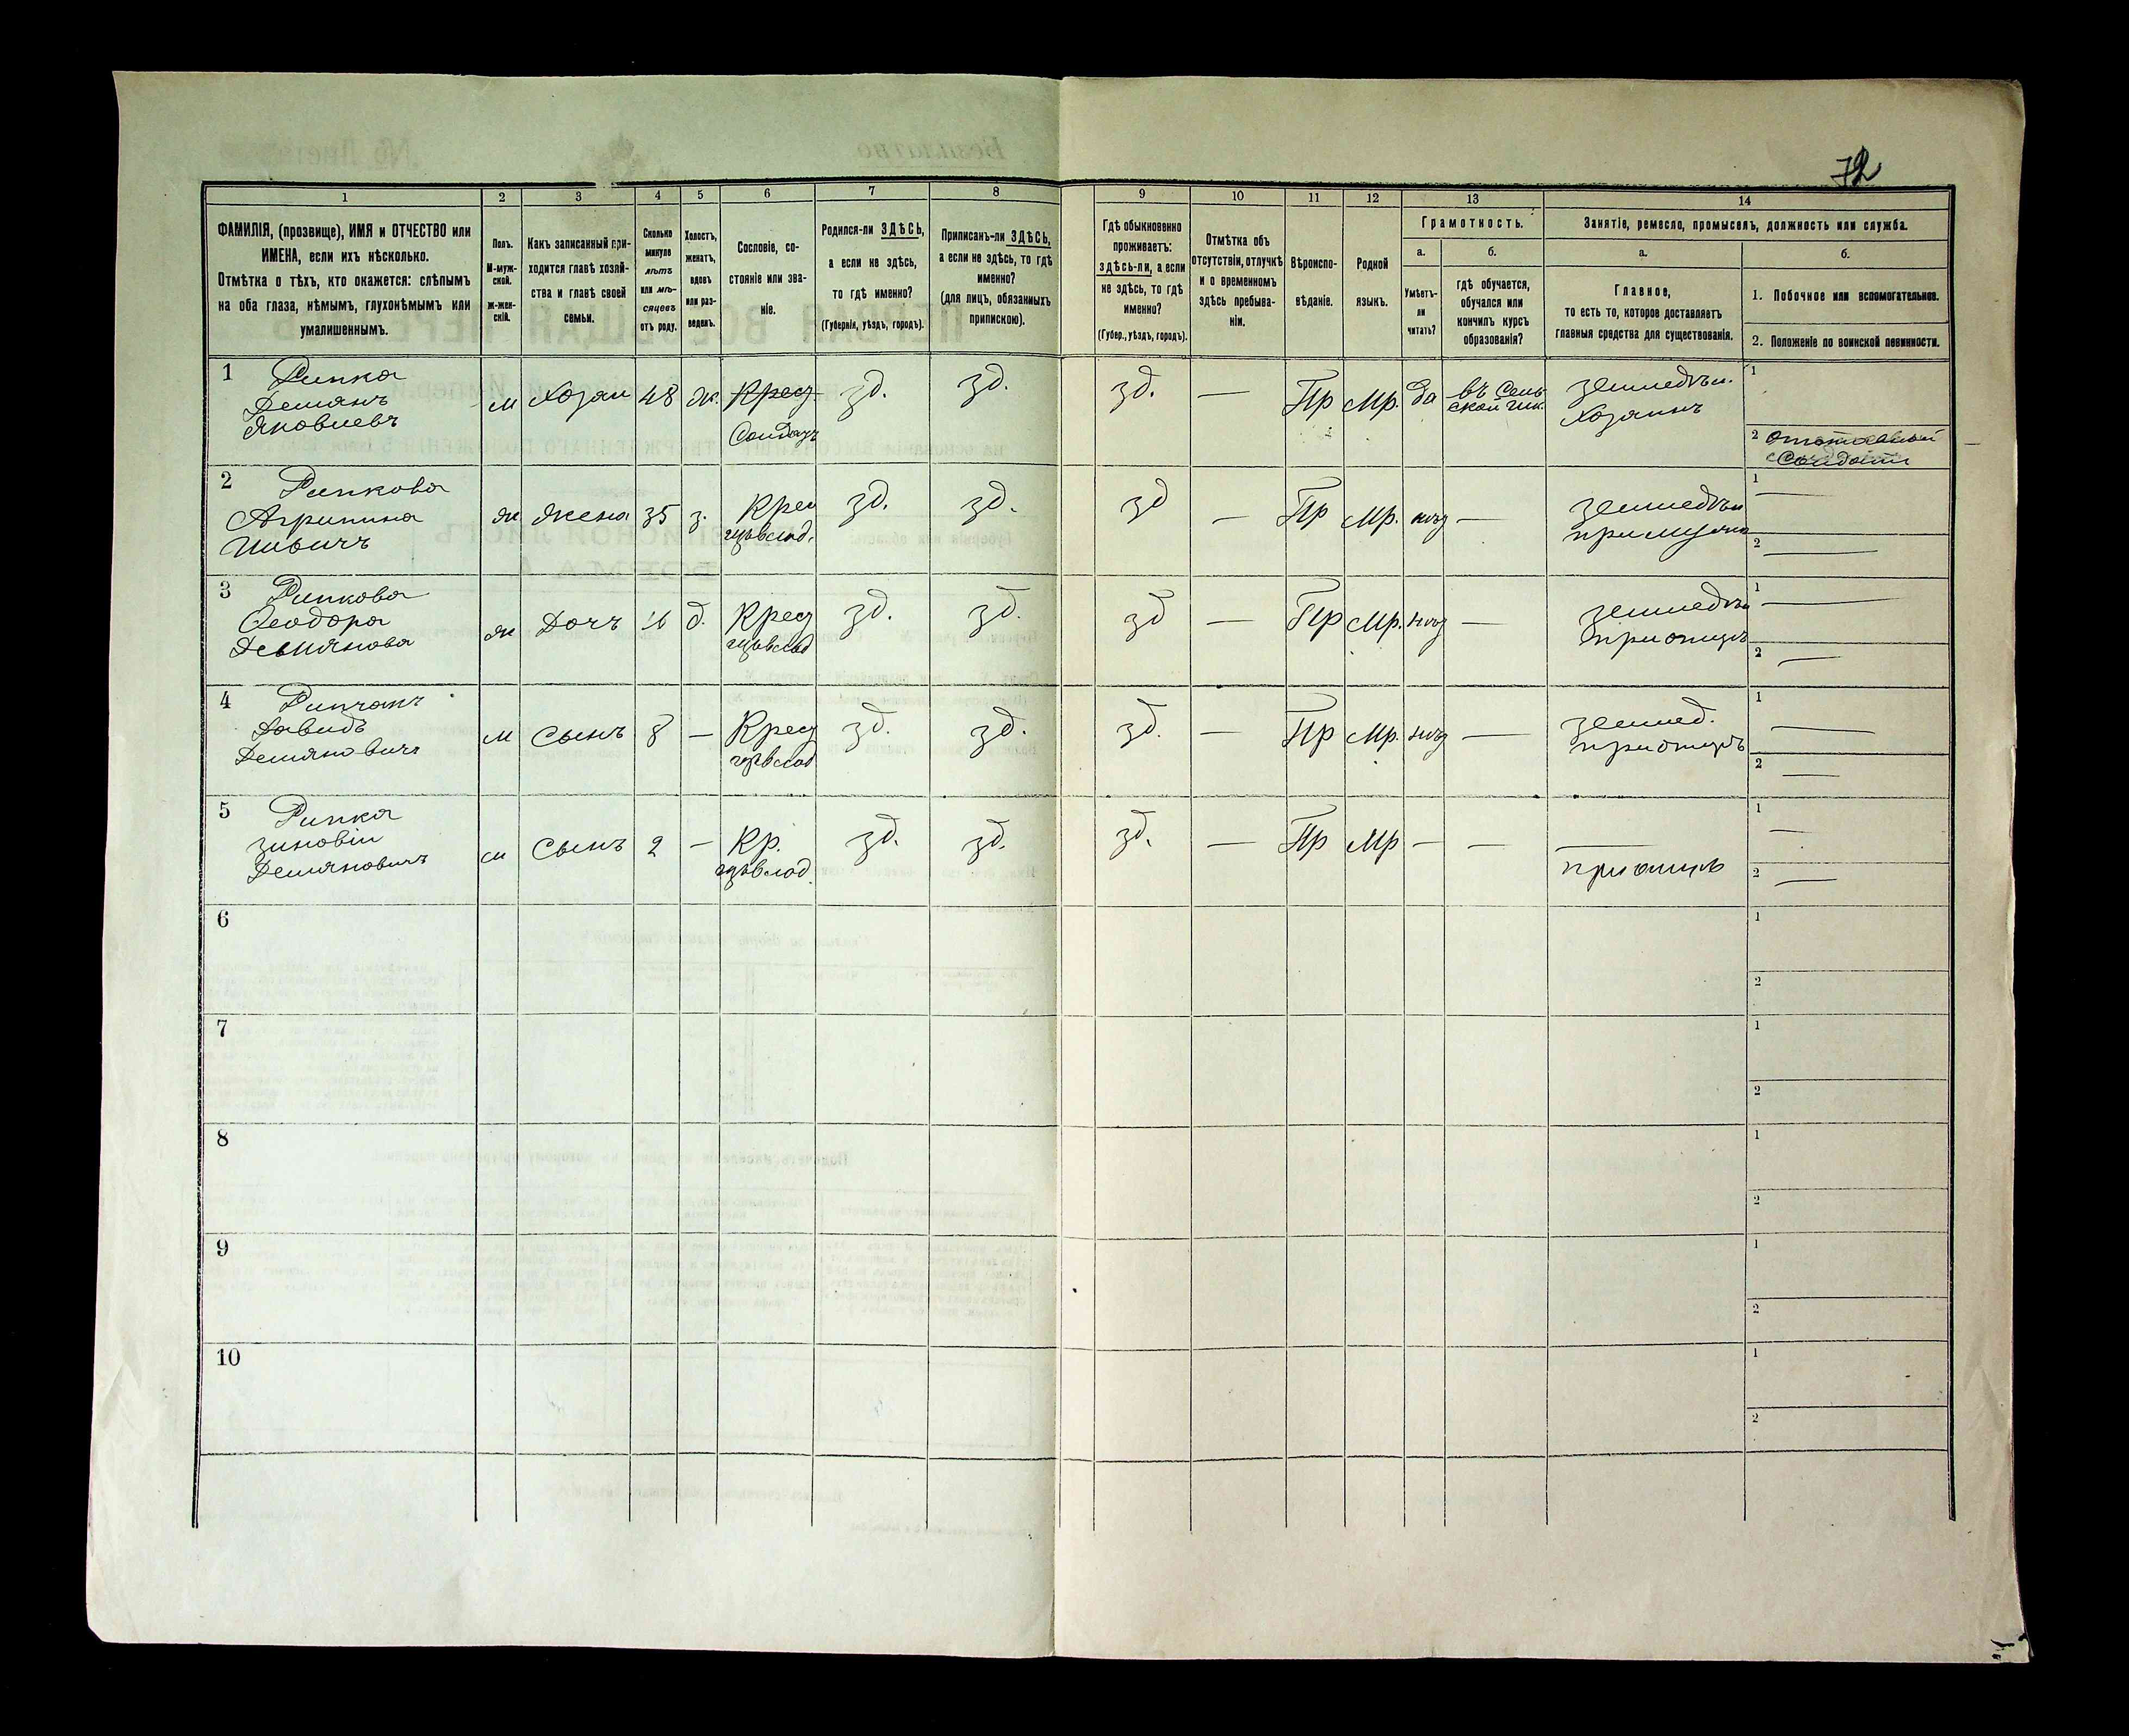 72
1
2
3
4
5
6
7
8
9
10
11
12
13
14
ФАМИЛІЯ, (прозвище), ИМЯ и ОТЧЕСТВО или
ИМЕНА, если ихъ нѣсколько.
Отмѣтка о тѣхъ, кто окажется: слѣпымъ
на оба глаза, нѣмымъ, глухонѣмымъ или
умалишеннымъ.
Полъ.
М-муж-
ской.
Ж-жен-
скій.
Какъ записанный при-
ходится главѣ хозяй-
ства и главѣ своей
семьи.
Сколько
минуло
лѣтъ
или мѣ-
сяцевъ
отъ роду.
Холостъ,
женатъ,
вдовъ
или раз-
веденъ.
Сословіе, со-
стояніе или зва-
ніе.
Родился-ли ЗДѢСЬ,
а если не здѣсь,
то гдѣ именно?
(Губернія, уѣздъ, городъ).
Приписанъ-ли ЗДѢСЬ,
а если не здѣсь, то гдѣ
именно?
(для лицъ, обязанныхъ
припискою).
Гдѣ обыкновенно
проживаетъ:
здѣсь-ли, а если
не здѣсь, то гдѣ
именно?
(Губер., уѣздъ, городъ).
Отмѣтка объ
отсутствіи, отлучкѣ
и о временномъ
здѣсь пребыва-
ніи.
Вѣроиспо-
вѣданіе.
Родной
языкъ.
Грамотность.
а.
Умѣетъ-
ли
читать?
б.
гдѣ обучается,
обучался или
кончилъ курсъ
образованія?
Занятіе, ремесло, промыселъ, должность или служба.
а.
Главное,
то есть то, которое доставляетъ
главныя средства для существованія.
б.
1. Побочное или вспомогательное.
2. Положеніе по воинской повинности.
1 Рипка
Демянъ
Яковлевъ
м
Хозаи
48
ж.
Крес
Солдатъ
зд.
зд.
зд.
—
Пр
Мр.
да
въ Сель
ской шк.
земледѣл.
Хозаинъ
1
2
Солдатъ
2 Рипкова
Агрипина
ж
жена
35
з.
Крес
зд.
зд.
зд
—
Пр
Мр.
нѣт
—
земледѣл
при мужѣ
1 —
2 —
3 Рипкова
Феодора
Демянова
ж
Дочъ
16
д.
Крес
зд.
зд.
зд
—
Пр
Мр.
нѣт
—
земледѣл
при отцѣ
1 —
2 —
4
Давидъ
Демяновичъ
м
Сынъ
8
—
Крес
зд.
зд.
зд.
—
Пр
Мр.
нѣт
—
землед.
при отцѣ
1 —
2 —
5 Рипка
Зиновій
Демяновичъ
м
Сынъ
2
—
Кр.
зд.
зд.
зд.
—
Пр
Мр
—
—
—
при отцѣ
1 —
2 —
6
1
2
7
1
2
8
1
2
9
1
2
10
1
2